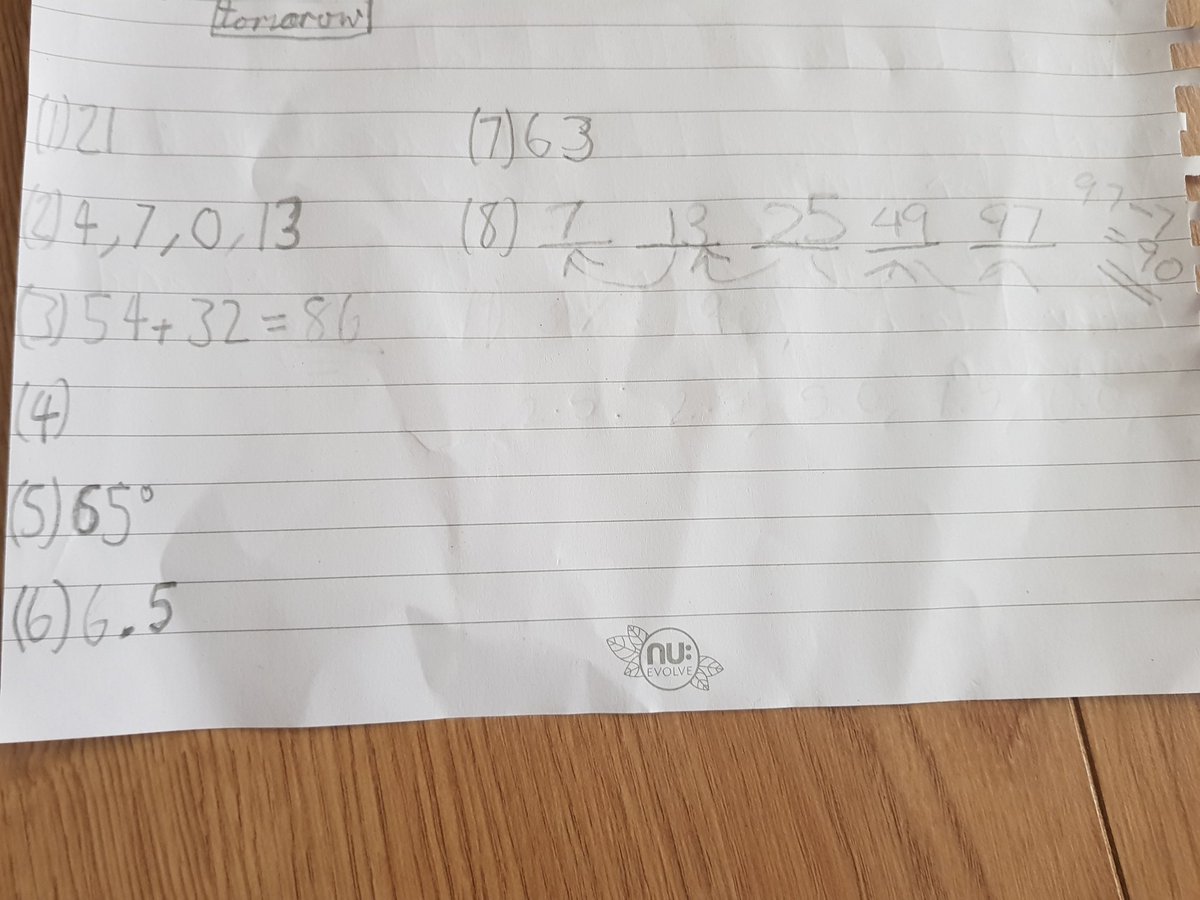 tomorow
(1) 21
(2) 4, 7, 0, 13
(3) 54 + 32 = 86
(4)
(5) 65°
(6) 6.5
(7) 63
(8) 7 13 25 49 97
97 - 7
= 90
nu:
EVOLVE